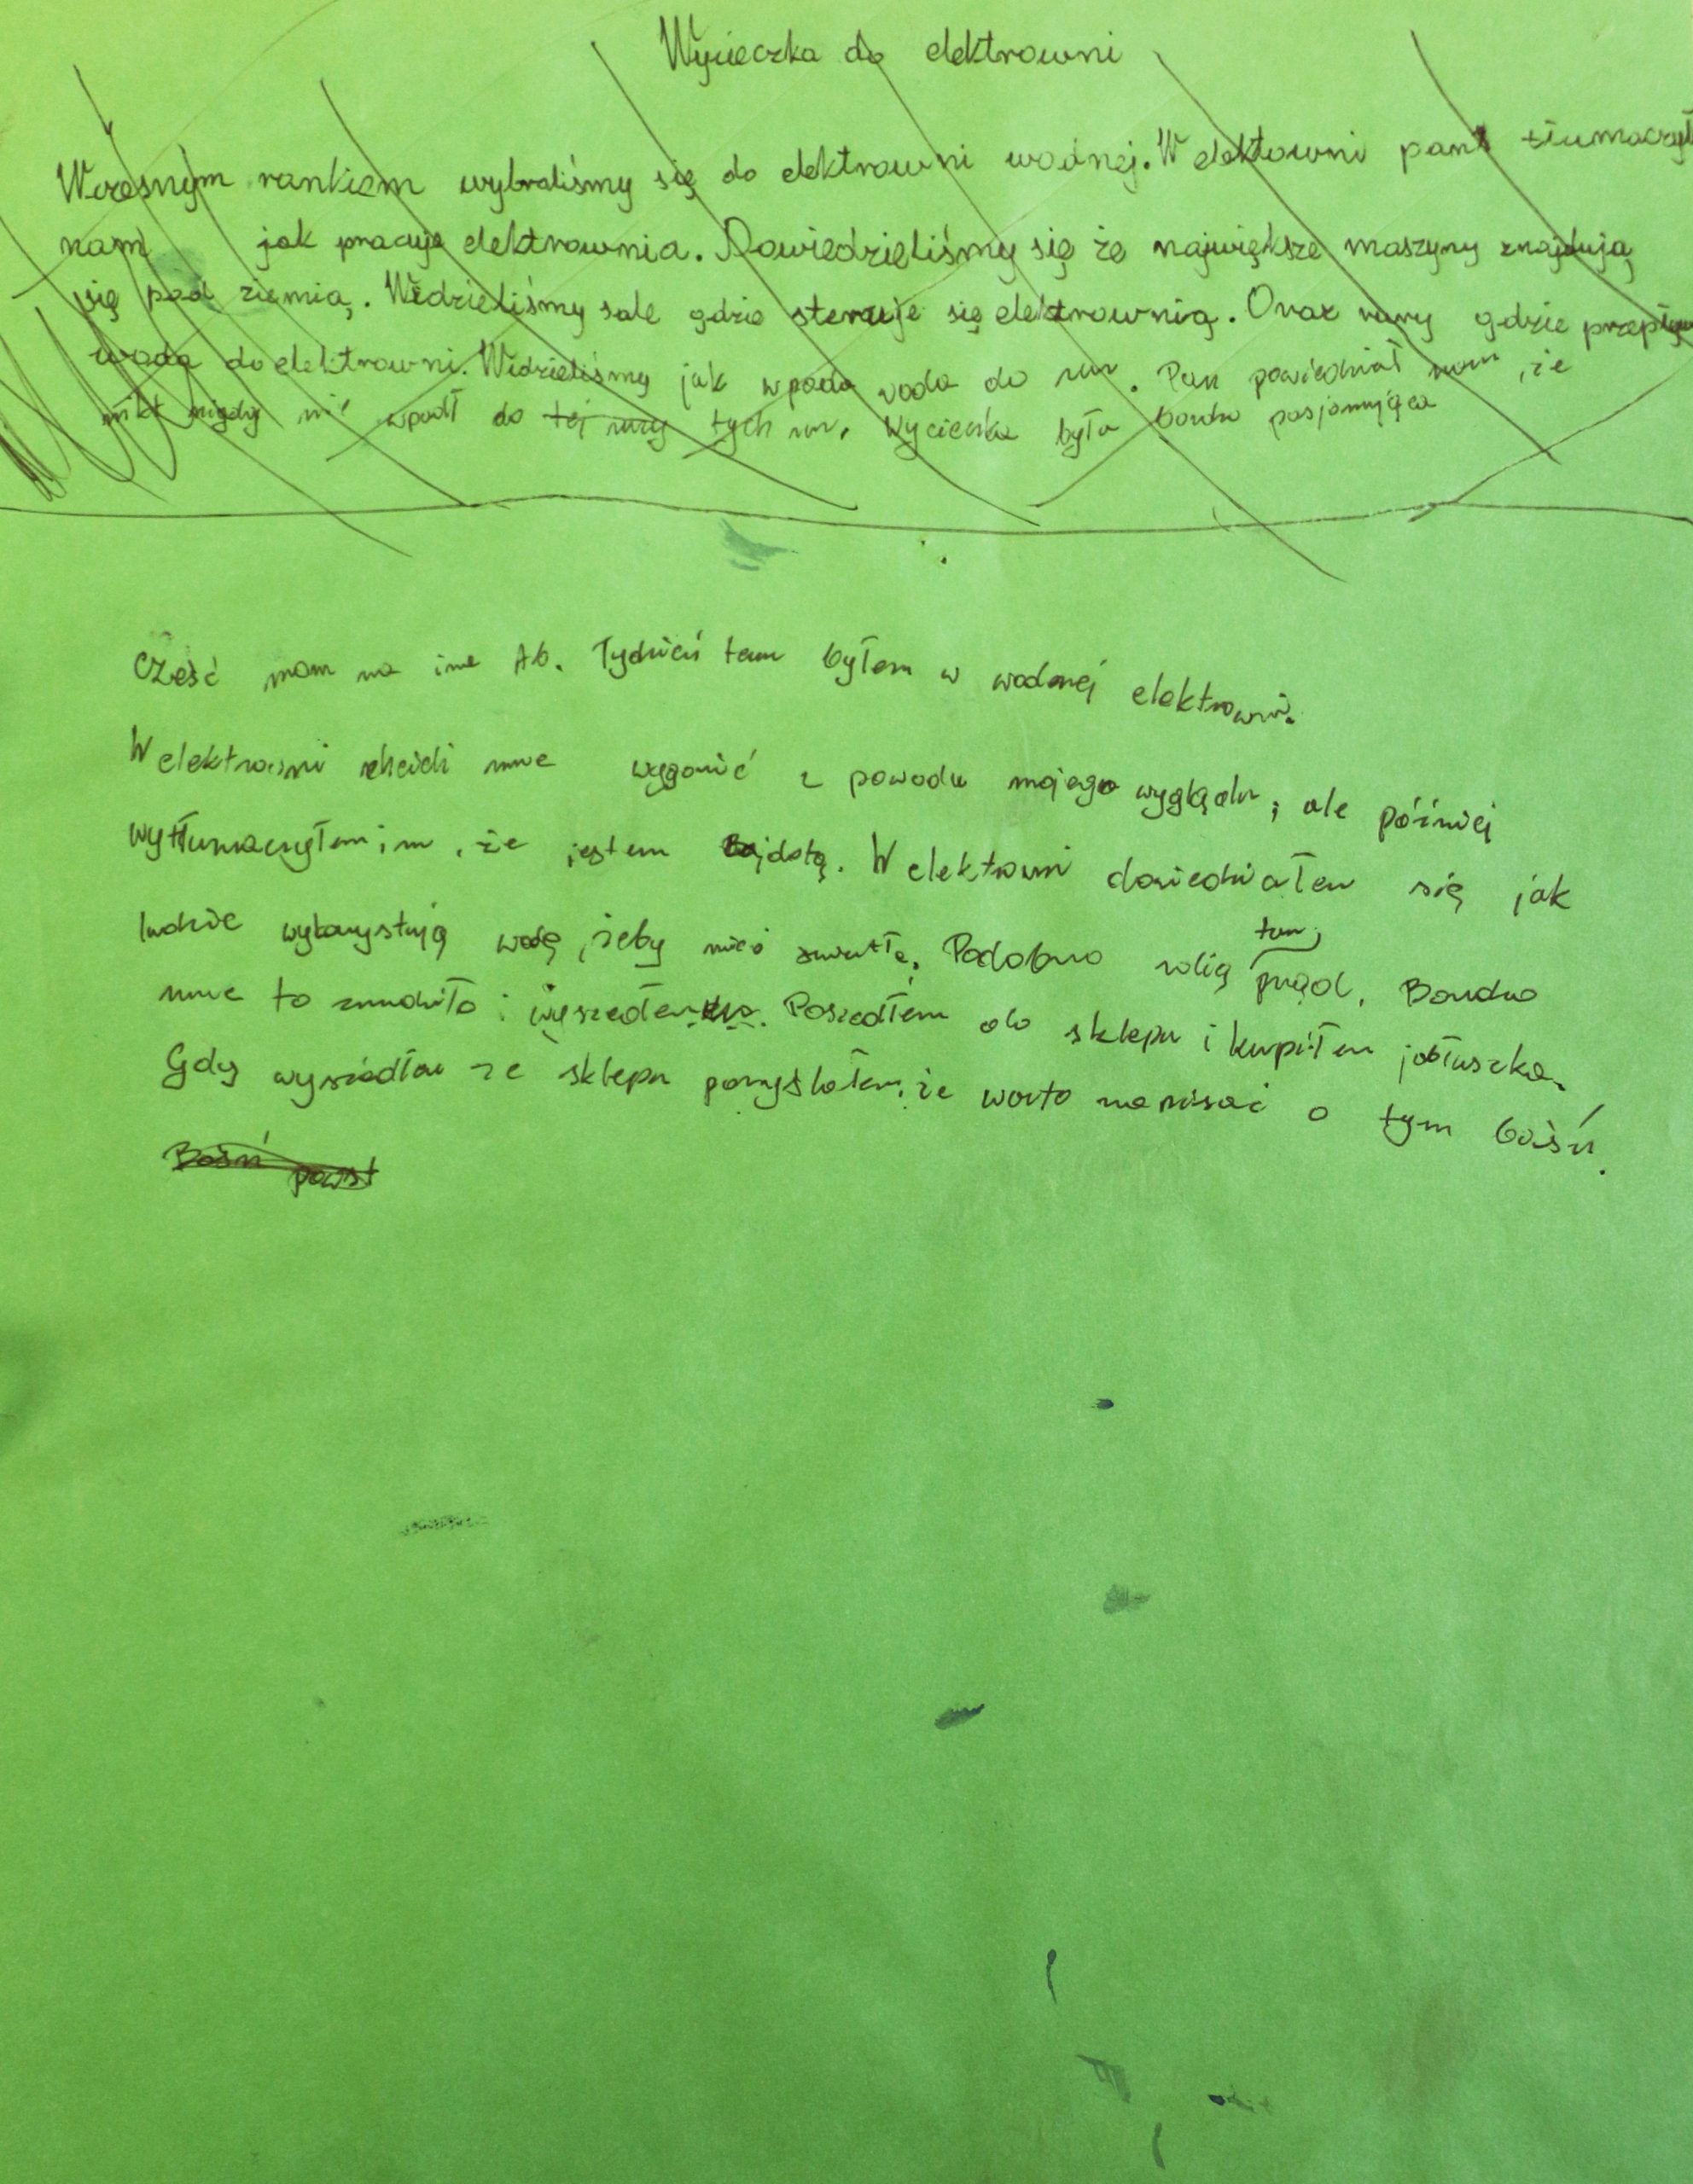 Wycieczka do elektrowni
Wczesnym rankiem wybraliśmy się do elektrowni wodnej. W elektowni pan tłumaczył
nam jak pracuje elektrownia. Dowiedzieliśmy się że największe maszyny znajdują
się pod ziemią. Widzieliśmy sale gdzie steruje się elektrownią. Oraz rury gdzie przepływ
woda do elektrowni. Widzieliśmy jak wpada woda do rur. Pan powiedział nam, że
nikt nigdy nie wpadł do tej rury tych rur. Wycieczka była bardzo pasjonująca
Cześć mam na ime Ab. Tydzień temu byłem w wodnej elektrowni.
W elektrowni chcieli mnie wygonić z powodu mojego wyglądu, ale później
wytłumaczyłem im, że jestem. W elektowni dowiedziałem się jak
ludzie wykorzystują wodę, żeby mieć światło. Podobno robią tam prąd. Bardzo
mnie to znudziło i wyszedłem. Poszedłem do sklepu i kupiłem jabłuszka.
Gdy wyszedłem ze sklepu pomyślałem, że warto napisać o tym baśń.
Baśń powst